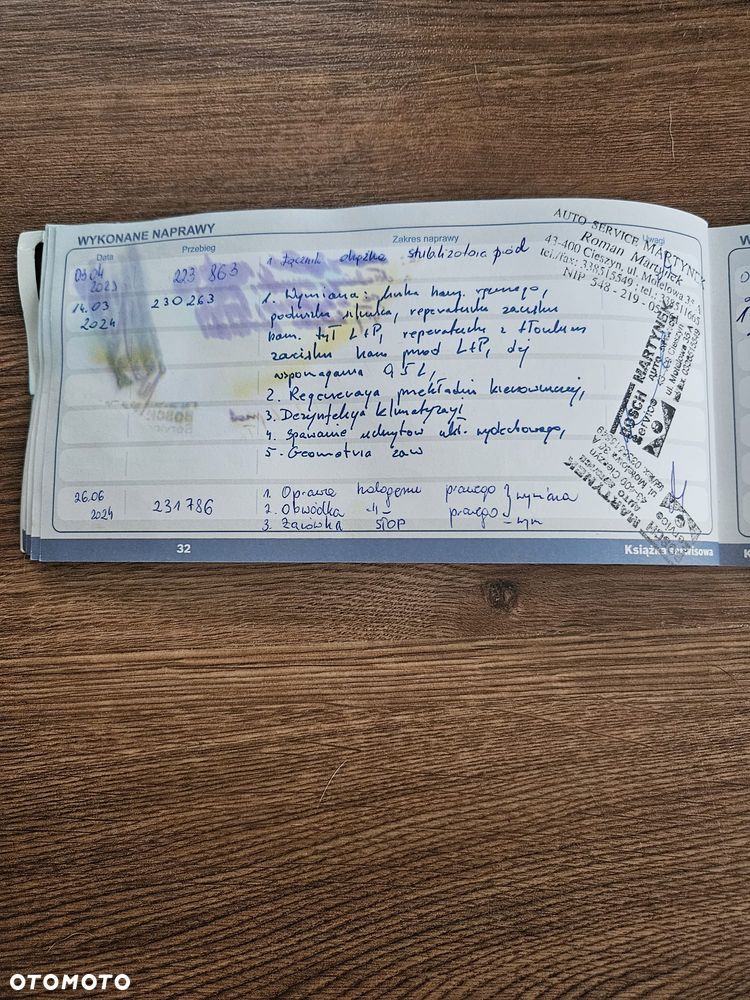 WYKONANE NAPRAWY
Data Przebieg Zakres naprawy Uwagi
03.04 2023 223 863 1. Łącznik drążka stabilizatora przód
14.03 2024 230 263 1. Wymiana: linka ham. ręcznego,
poduszka silnika, reperaturka zacisku
ham. tył L+P, reperaturka z tłoczkiem
zacisku ham przód L+P, olej
wspomagania 0,5L,
2. Regeneracja przekładni kierowniczej,
3. Dezynfekcja klimatyzacji
4. Spawanie uchwytów ukł. wydechowego,
5. Geometria zaw
26.06 2024 231786 1. Oprawa halogenu prawego } wymiana
2. Obwódka -"- prawego
3. Żarówka STOP - wym
AUTO SERVICE MARTYNEK
Roman Martynek
43-400 Cieszyn, ul. Motelowa
tel./fax: 338515549
NIP 548-219
BOSCH MARTYNEK
Service
MARTYNEK
32
Książka serwisowa
OTOMOTO